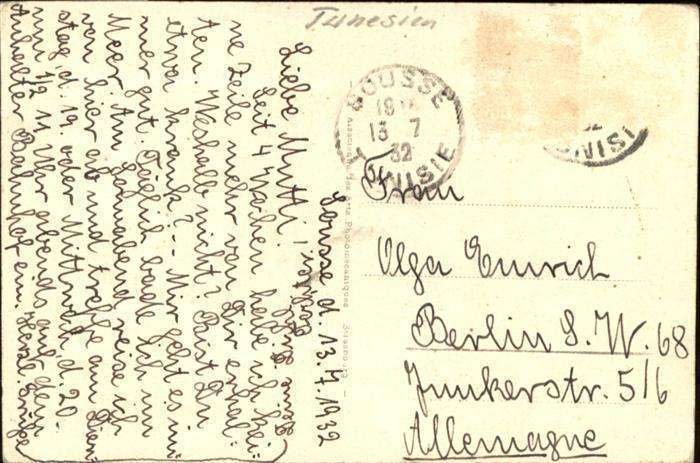 Tunesien
SOUSSE
13 7
32
TUNISIE
Sousse d. 13.7.1932
Liebe Mutti!
Seit 4 Wochen habe ich kei-
ne Zeile mehr von Dir erhal-
ten. Weshalb nicht? Bist Du
etwa krank? - Mir geht es im-
mer gut. Täglich bade ich im
Meer. Am Sonnabend reise ich
von hier ab und treffe am Diens-
tag d. 19. oder Mittwoch, d. 20.
um 1/2 11 Uhr abends auf dem
Anhalter Bahnhof ein. Herzl. Grüße
Frau
Olga Emrich
Berlin S.W. 68
Junkerstr. 5/6
Allemagne